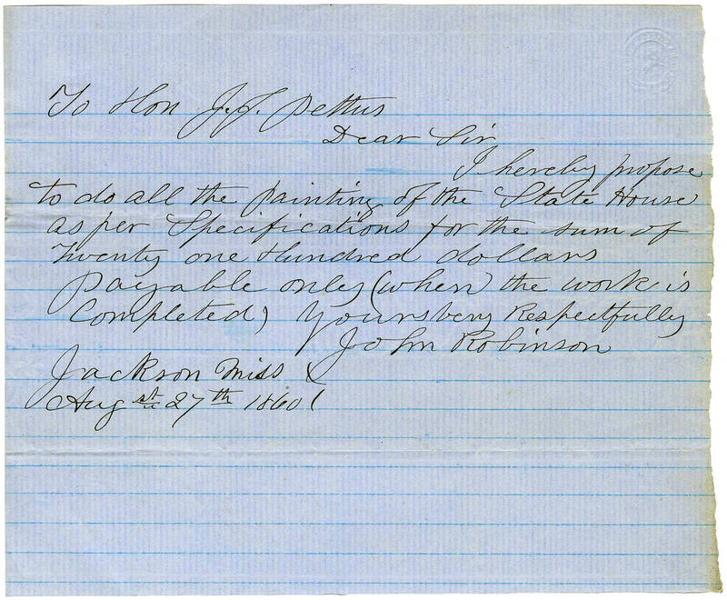 To Hon J. J. Pettus
Dear Sir
I hereby propose
to do all the Painting of the State House
as per Specifications for the sum of
Twenty one Hundred dollars
payable only (when the work is
Completed) Yours very Respectfully
John Robinson
Jackson Miss
Augst 27th 1860